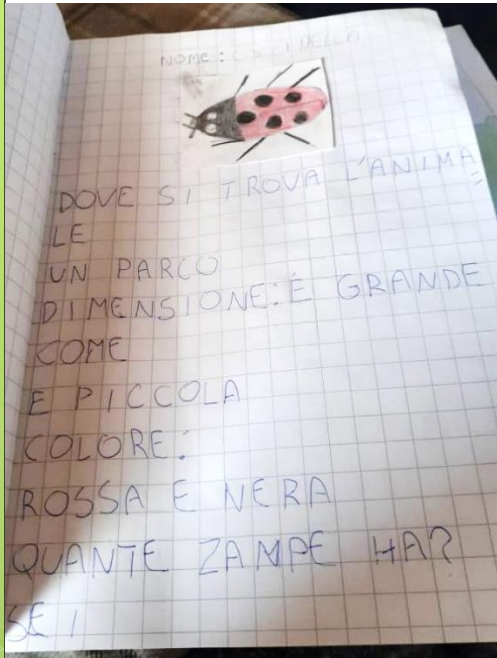 NOME: COCCINELLA
DOVE SI TROVA L'ANIMA=
LE
UN PARCO
DIMENSIONE: É GRANDE
COME
E PICCOLA
COLORE:
ROSSA E NERA
QUANTE ZAMPE HA?
SEI